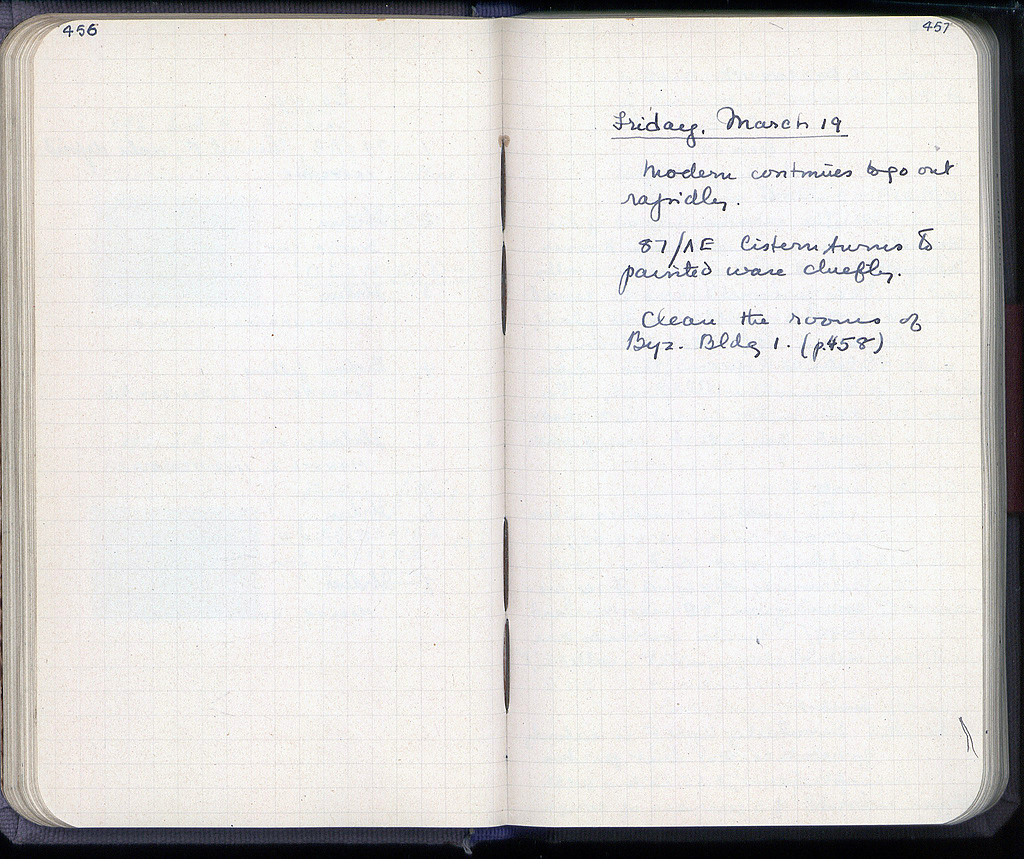 456
457
Friday, March 19
Modern continues to go out
rapidly.
87/ΛE Cistern turns to
painted ware chiefly.
Clean the rooms of
Byz. Bldg 1. (p.458)